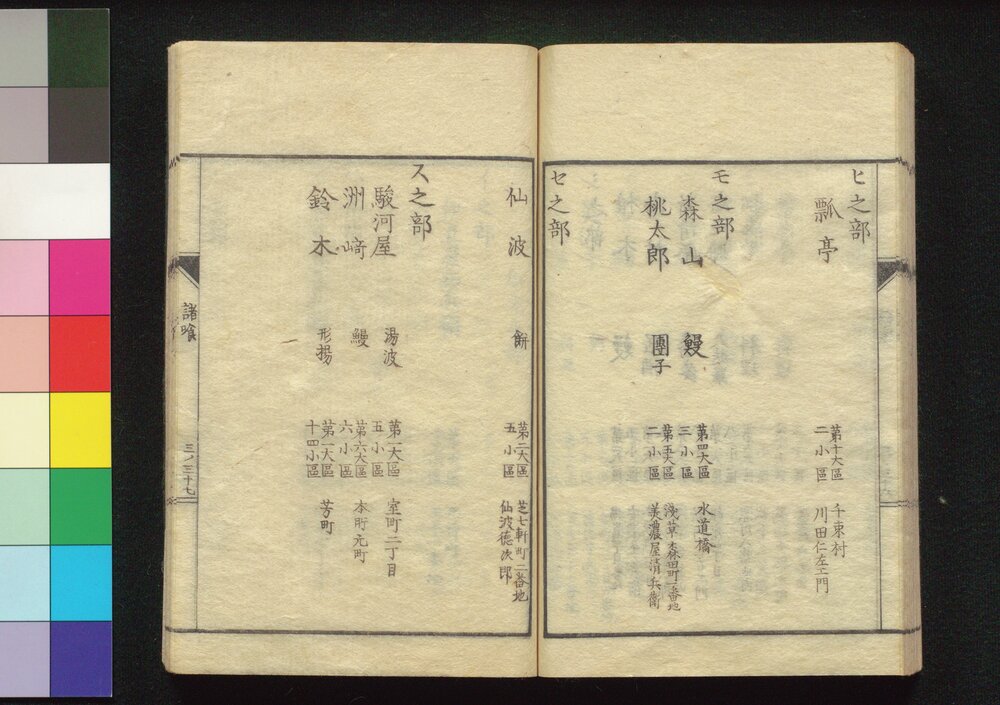 ヒ之部
瓢亭
第十大區
二小區
千束村
川田仁左エ門
モ之部
森山
鰻
第四大區
三小區
水道橋
桃太郎
團子
第五大區
二小區
浅草森田町一番地
美濃屋清兵衛
セ之部
仙波
餅
第二大區
五小區
芝七軒町二番地
仙波德次郎
ス之部
駿河屋
湯波
第一大區
五小區
室町二丁目
洲﨑
鰻
第六大區
六小區
本所元町
鈴木
形揚
第一大區
十四小區
芳町
諸喰
三ノ三十七